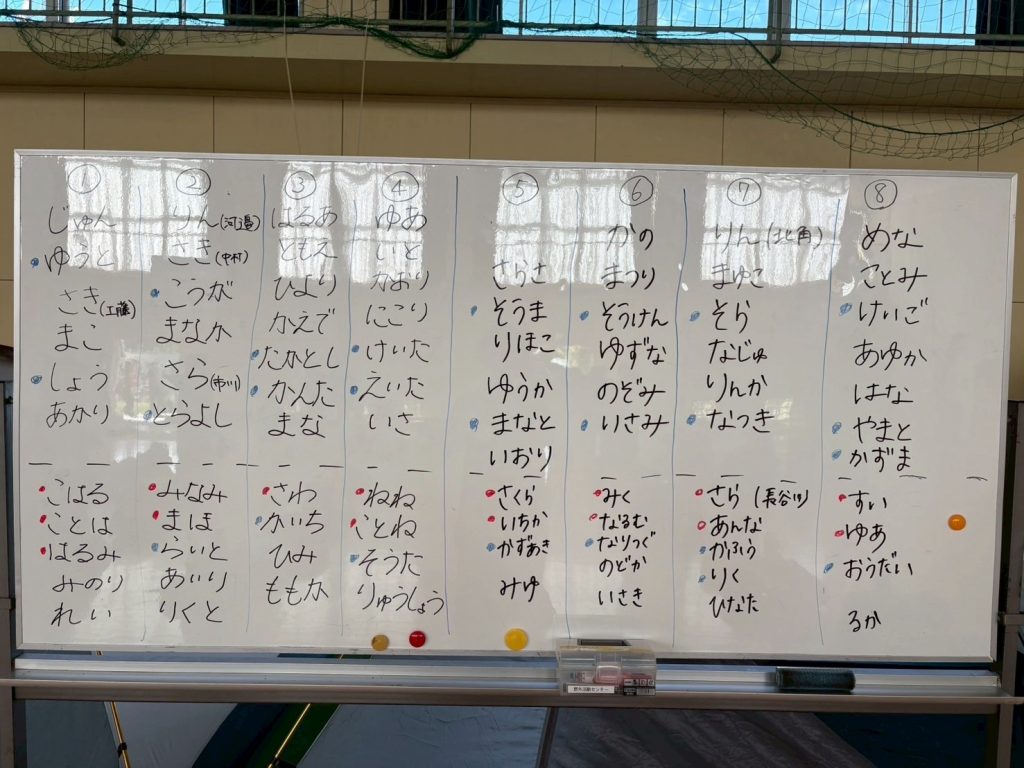 ①
じゅん
ゆうと
さき(工藤)
まこ
しょう
あかり
こはる
ことは
はるみ
みのり
れい
②
りん(河邊)
さき(中村)
こうが
まなか
さら(市川)
とらよし
みなみ
まほ
らいと
あいり
りくと
③
はるあ
ともえ
ひより
かえで
たかとし
かんた
まな
さわ
かいち
ひみ
ももか
④
ゆあ
いと
かおり
にこり
けいた
えいた
いさ
ねね
ことね
そうた
りゅうしょう
⑤
さらさ
そうま
りほこ
ゆうか
まなと
いおり
さくら
いちか
かずあき
みゆ
⑥
かの
まつり
そうけん
ゆずな
のぞみ
いさみ
みく
なるむ
なりつぐ
のどか
いさき
⑦
りん(北角)
まゆこ
そら
なじゅ
りんか
なつき
さら(長谷川)
あんな
がふう
りく
ひなた
⑧
めな
ことみ
けいご
あゆか
はな
やまと
かずま
すい
ゆあ
おうだい
るか
野外活動センター